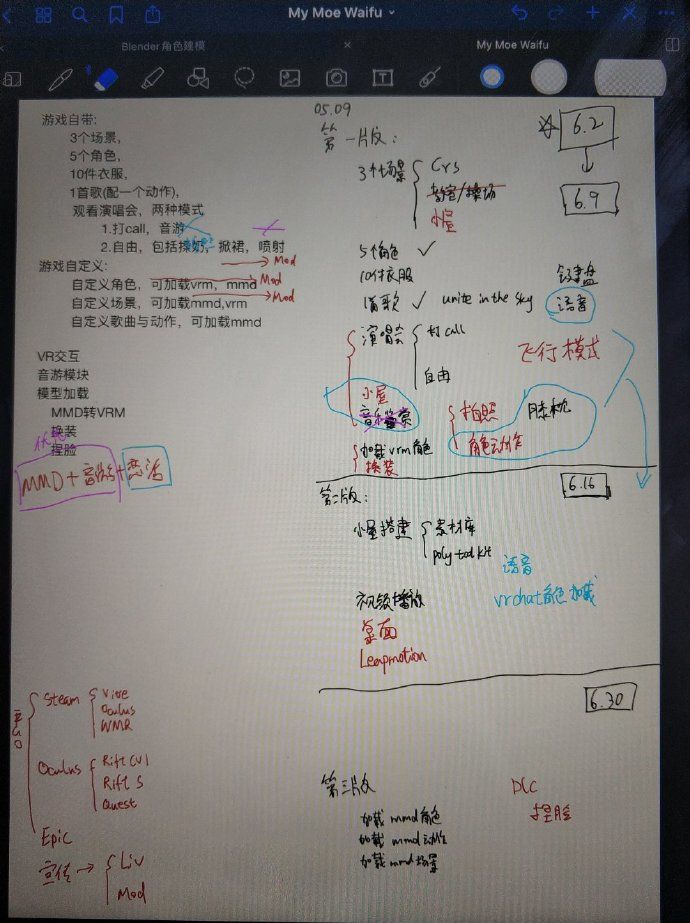 My Moe Waifu
Blender 角色建模
My Moe Waifu
游戏自带:
3个场景,
5个角色,
10件衣服,
1首歌(配一个动作),
观看演唱会，两种模式
1.打call，音游
2.自由，包括揉奶，掀裙，喷射
Mod
游戏自定义:
自定义角色，可加载vrm，mmd
Mod
自定义场景，可加载mmd,vrm
Mod
自定义歌曲与动作，可加载mmd
VR交互
音游模块
模型加载
MMD转VRM
换装
捏脸
MMD + 音游 + 恋活
平台
Steam
Vive
Oculus
WMR
Oculus
Rift CV1
Rift S
Quest
Epic
宣传 → Liv
Mod
05.09
第一版：
6.2
6.9
3个场景
教室/操场
小屋
5个角色 ✓
10件衣服
1首歌 ✓ unite in the sky
键盘
语音
演唱会
打call
自由
飞行模式
小屋
拍照
膝枕
角色动作
加载vrm角色
换装
6.16
第二版：
小屋搭建
素材库
poly toolkit
语音
vrchat角色加载
视频播放
桌面
Leapmotion
6.30
第三版
DLC
捏脸
加载mmd角色
加载mmd动作
加载mmd场景